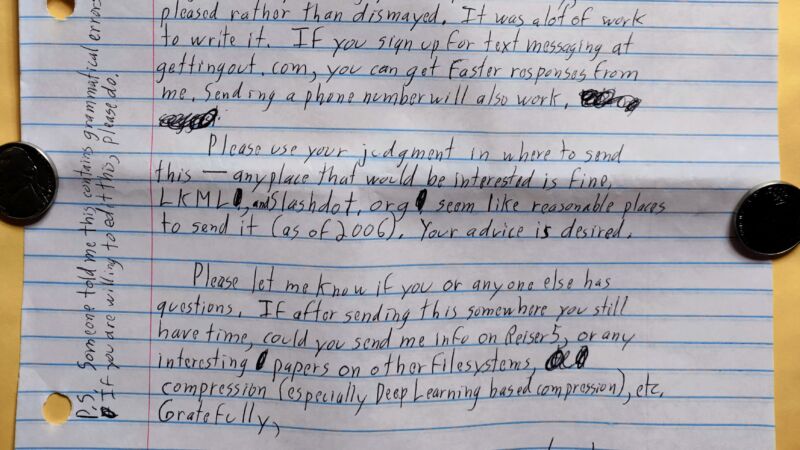 pleased rather than dismayed. It was a lot of work
to write it. If you sign up for text messaging at
gettingout.com, you can get faster responses from
me. Sending a phone number will also work.
Please use your judgment in where to send
this — anyplace that would be interested is fine.
LKML, and Slashdot.org seem like reasonable places
to send it (as of 2006). Your advice is desired.
Please let me know if you or anyone else has
questions. If after sending this somewhere you still
have time, could you send me info on Reiser5, or any
interesting papers on other filesystems,
compression (especially Deep Learning based compression), etc.
Gratefully,
P.S. Someone told me this contains grammatical errors.
If you are willing to edit this, please do.